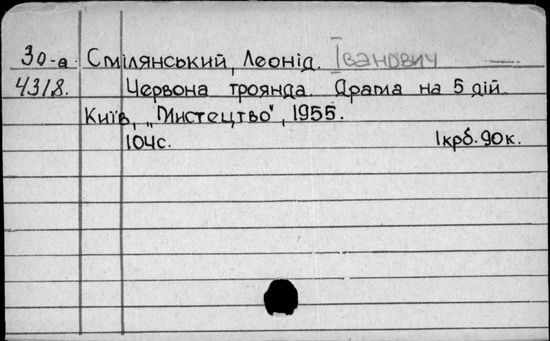 30-а Смілянський, Леонід. Іванович
4318. Червона троянда. Драма на 5 дій.
Київ, „Мистецтво", 1955.
104с. 1крб. 90к.